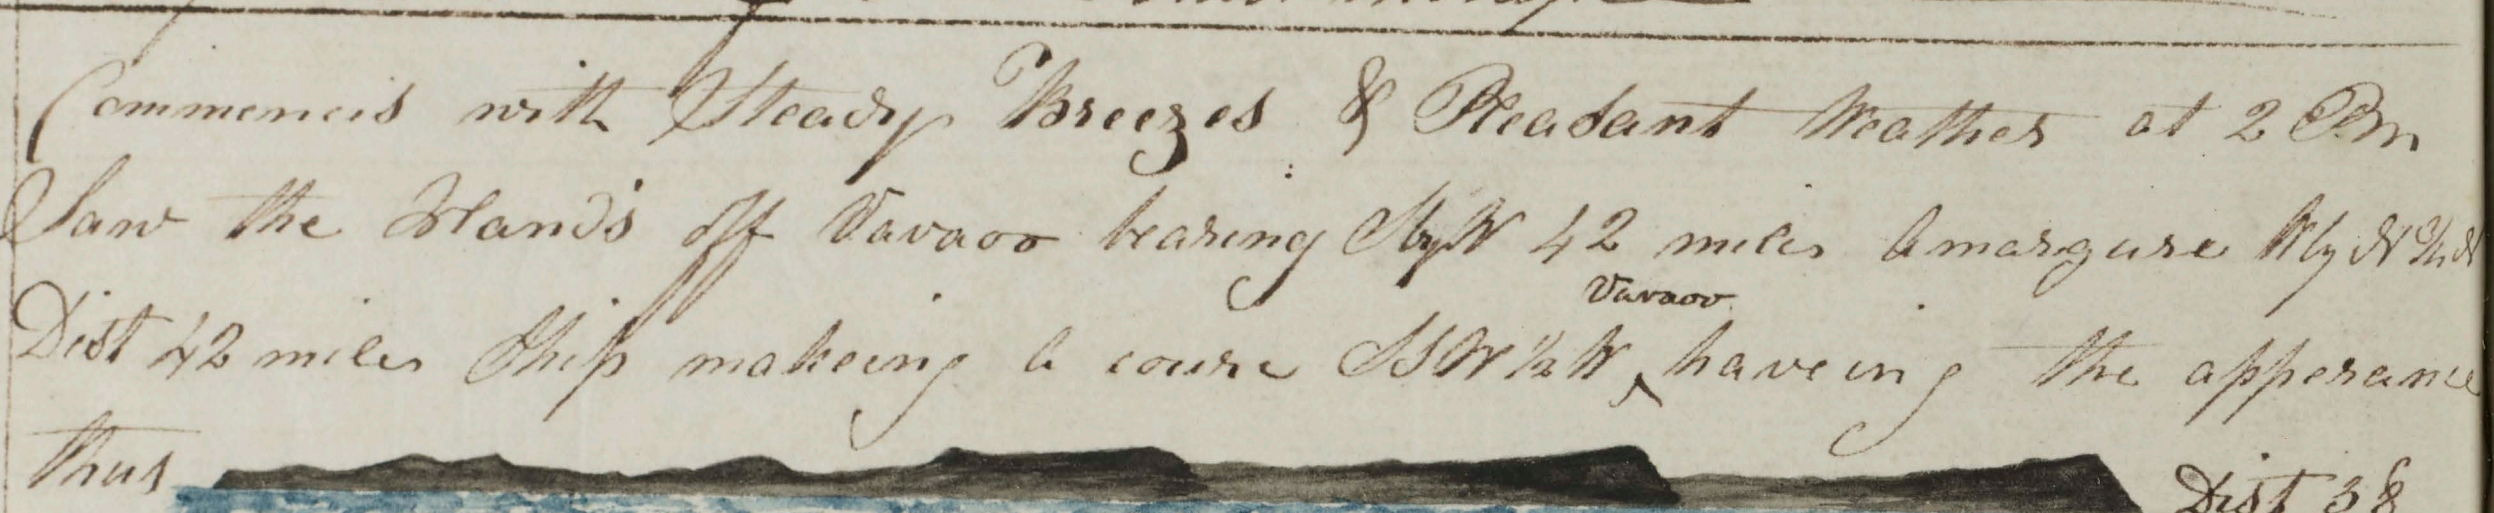 Commencis with Steady Breezes & Pleasant Weather at 2 Pm
Saw the Islands off Vavaoo bearing SbyW 42 miles Amargure WbyN½N
Dist 42 miles Ship makeing a course SSW½W ^ Vavaoo haveing the apperance
thus Dist 38